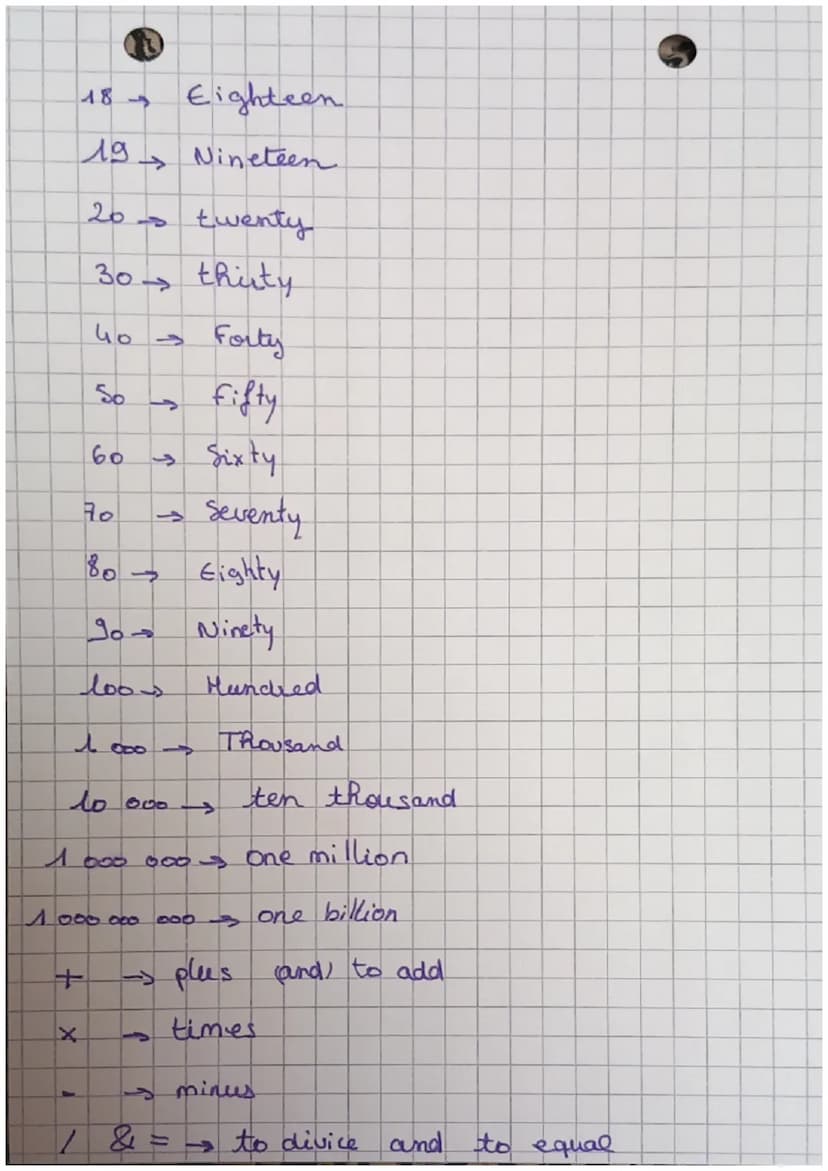 18 → Eighteen
19 → Nineteen
20 → twenty
30 → thirty
40 → Forty
50 → Fifty
60 → Sixty
70 → Seventy
80 → Eighty
90 → Ninety
100 → Hundred
1 000 → Thousand
10 000 → ten thousand
1 000 000 → one million
1 000 000 000 → one billion
+ → plus (and) to add
x → times
- → minus
/ & = → to divice and to equal